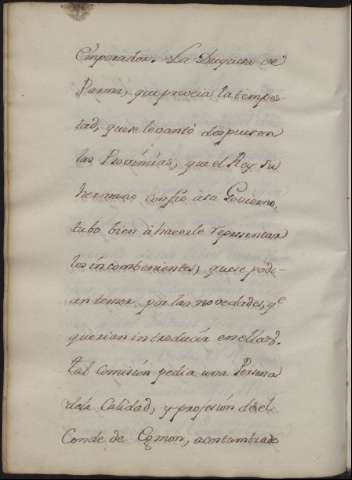 Emperador. La Duquesa de
Parma, que preveia la tempes-
tad, que se levantó despues en
las Provincias, que el Rey su
hermano confió a su Govierno,
tubo bien à hacerle representar
los incombenientes, que se podi-
an temer por las novedades, q.e
querian introducir en ellas.
Tal Comisión pedia una Persona
de la Calidad, y profesión del
Conde de Egmon, acostumbrado